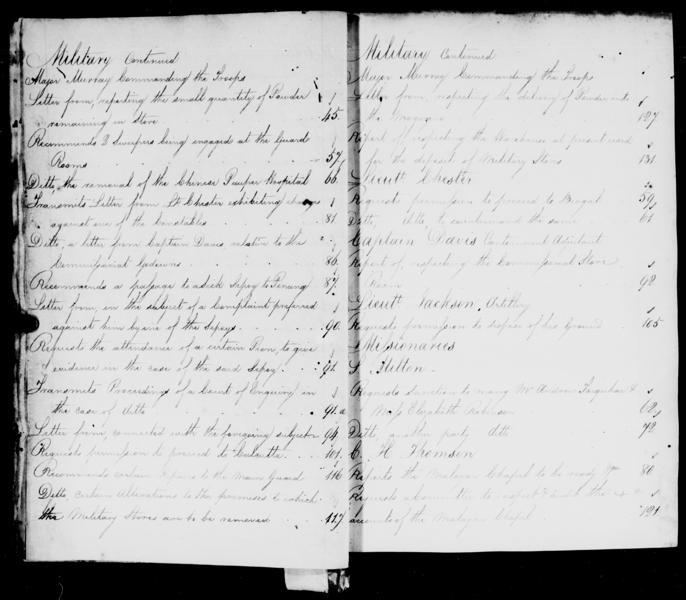 Military Continued
Major Murray Commanding the Troops
Letter from, reporting the small quantity of Powder
remaining in Store 45.
Recommends 2 Sweepers being engaged at the Guard
Rooms 57
Ditto, the removal of the Chinese Pauper Hospital 66.
Transmits Letter from Lt Chester exhibiting charge
against one of the Constables 81
Ditto, a letter from Captain Davis, relative to the
Commissariat Godowns 86.
Recommends a passage to a sick Sepoy to Penang 87.
Letter from, on the subject of a Complaint preferred
against him by one of the Sepoys 90.
Requests the attendance of a certain Peon, to give
evidence in the case of the said Sepoy 91.
Transmits Proceedings of a Court of Enquiry in
the case of ditto 91.a
Letter from, connected with the foregoing subject 94.
Requests permission to proceed to Calcutta 101.
Recommends certain repairs to the Main Guard 116
Ditto certain Alterations to the premises to which
the Military Stores are to be removed 117
Military Continued
Major Murray Commanding the Troops
Letter from, respecting the delivery of Powder into
the Magazine 127
Report of respecting the Warehouse at present used
for the deposit of Military Stores 131
Lieutt Chester
Requests permission to proceed to Bengal 59
Ditto, ditto, to the same 61
Captain Davis Cantonment Adjutant
Report of, respecting the Commissariat Store
Room 92
Lieutt Jackson, Artillery
Requests permission to dispose of his Ground 105
Missionaries
Requests sanction to marry Mr Andrew Farquhar &
Miss Elizabeth Robinson 62
Ditto, another party ditto 72
C. H. Thomson
Reports the Malayan Chapel to be ready 80
Requests a Committee to inspect & audit the
accounts of the Malayan Chapel 121